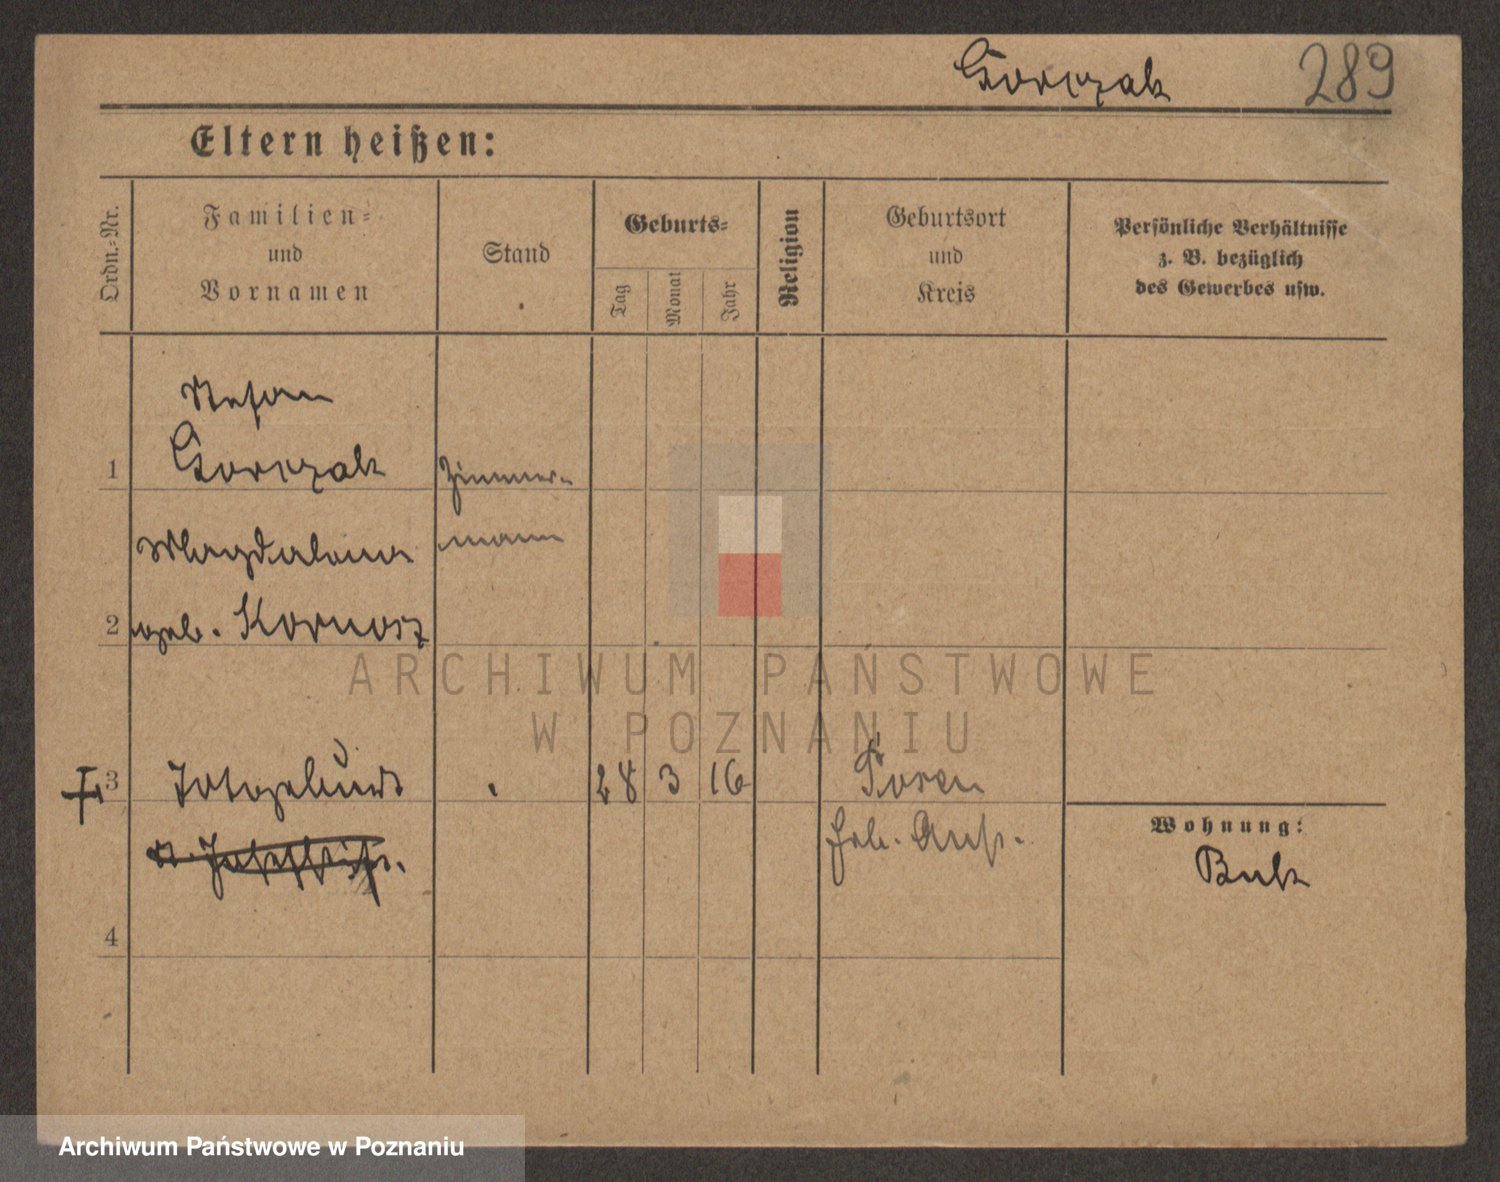 Gorczak 289
Eltern heißen:
Ordn.=Nr.
Familien=
und
Vornamen
Stand
Geburts=
Tag
Monat
Jahr
Religion
Geburtsort
und
Kreis
Persönliche Verhältnisse
z. B. bezüglich
des Gewerbes usw.
Stefan
1 Gorczak Zimmer-
Magdalena mann
2 geb. Kornosz
ARCHIWUM PAŃSTWOWE
W POZNANIU
3 Totgeburt 28 3 16 Posen
Wohnung:
Buk
4
Archiwum Państwowe w Poznaniu